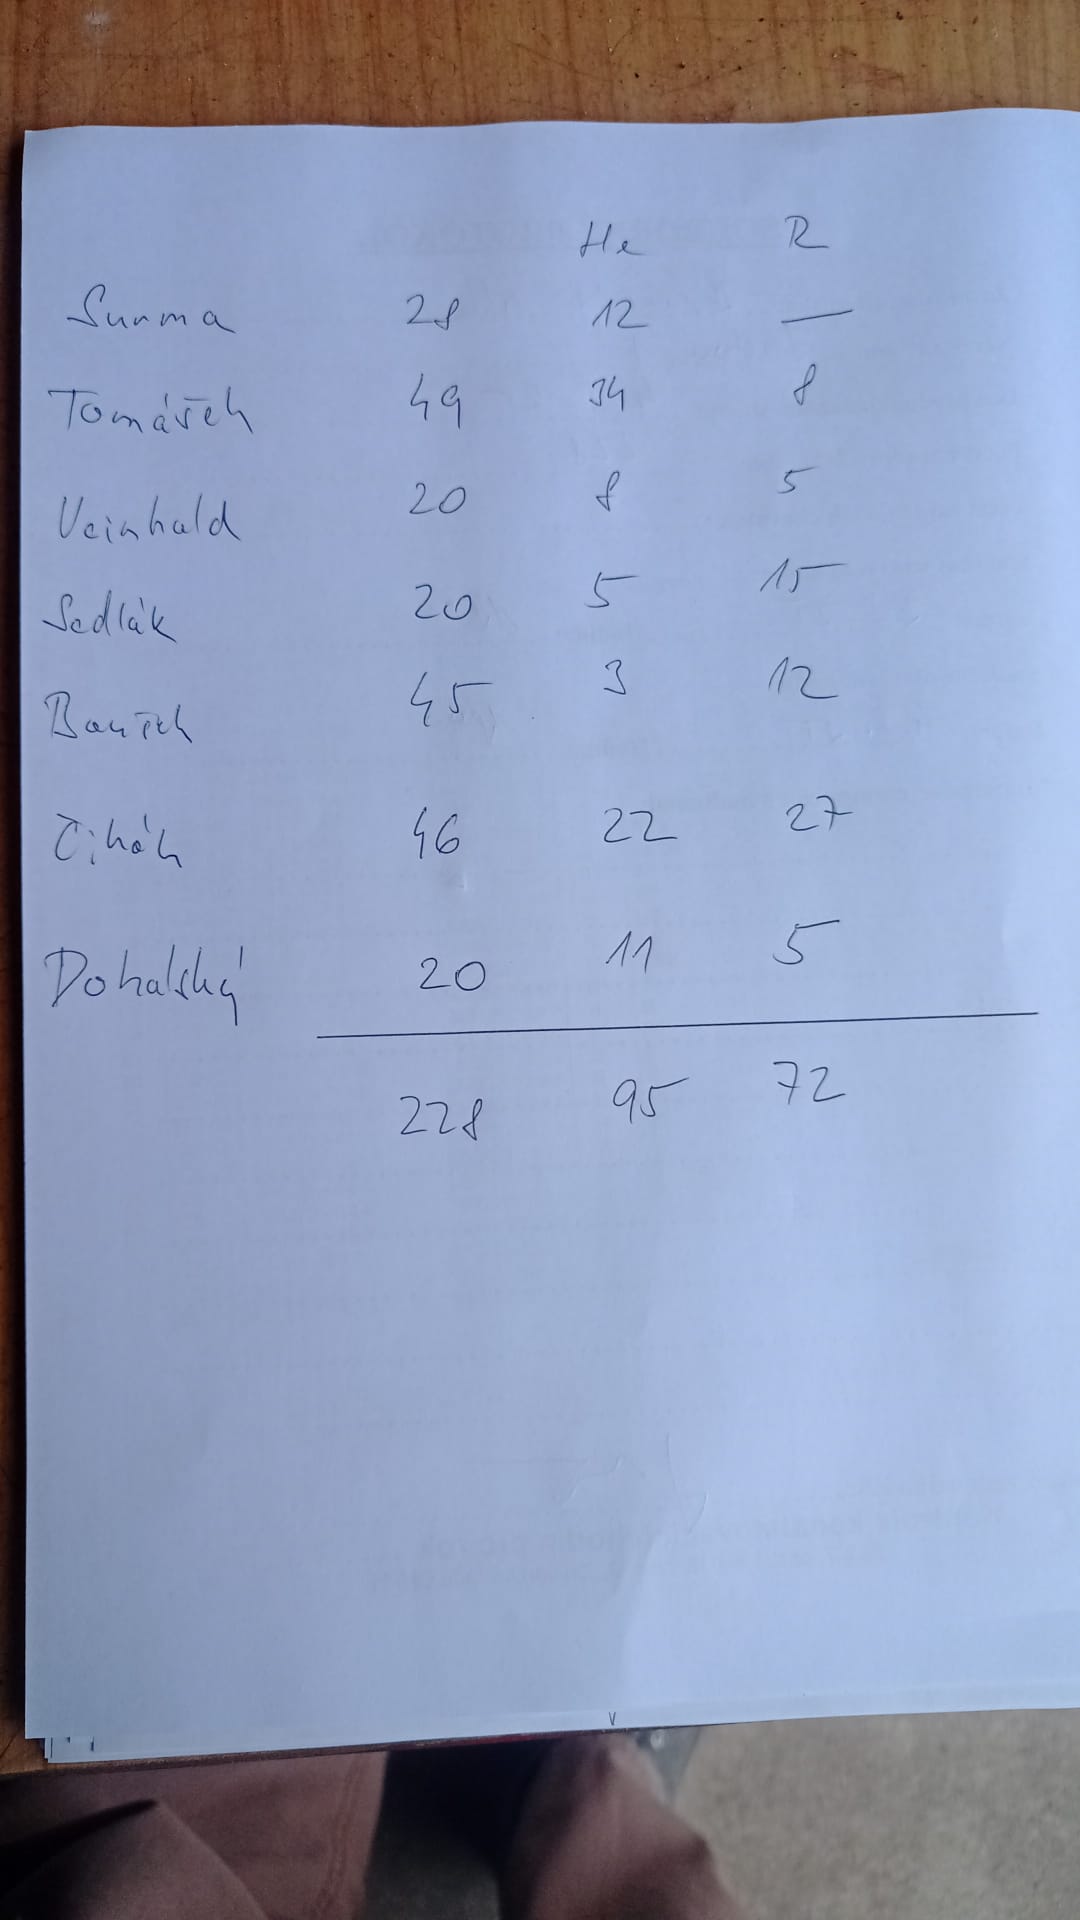 He R
Surma 28 12 —
Tomášek 49 34 8
Veinhald 20 8 5
Sedlák 20 5 15
Bouřek 45 3 12
Čihák 46 22 27
Dohalský 20 11 5
228 95 72